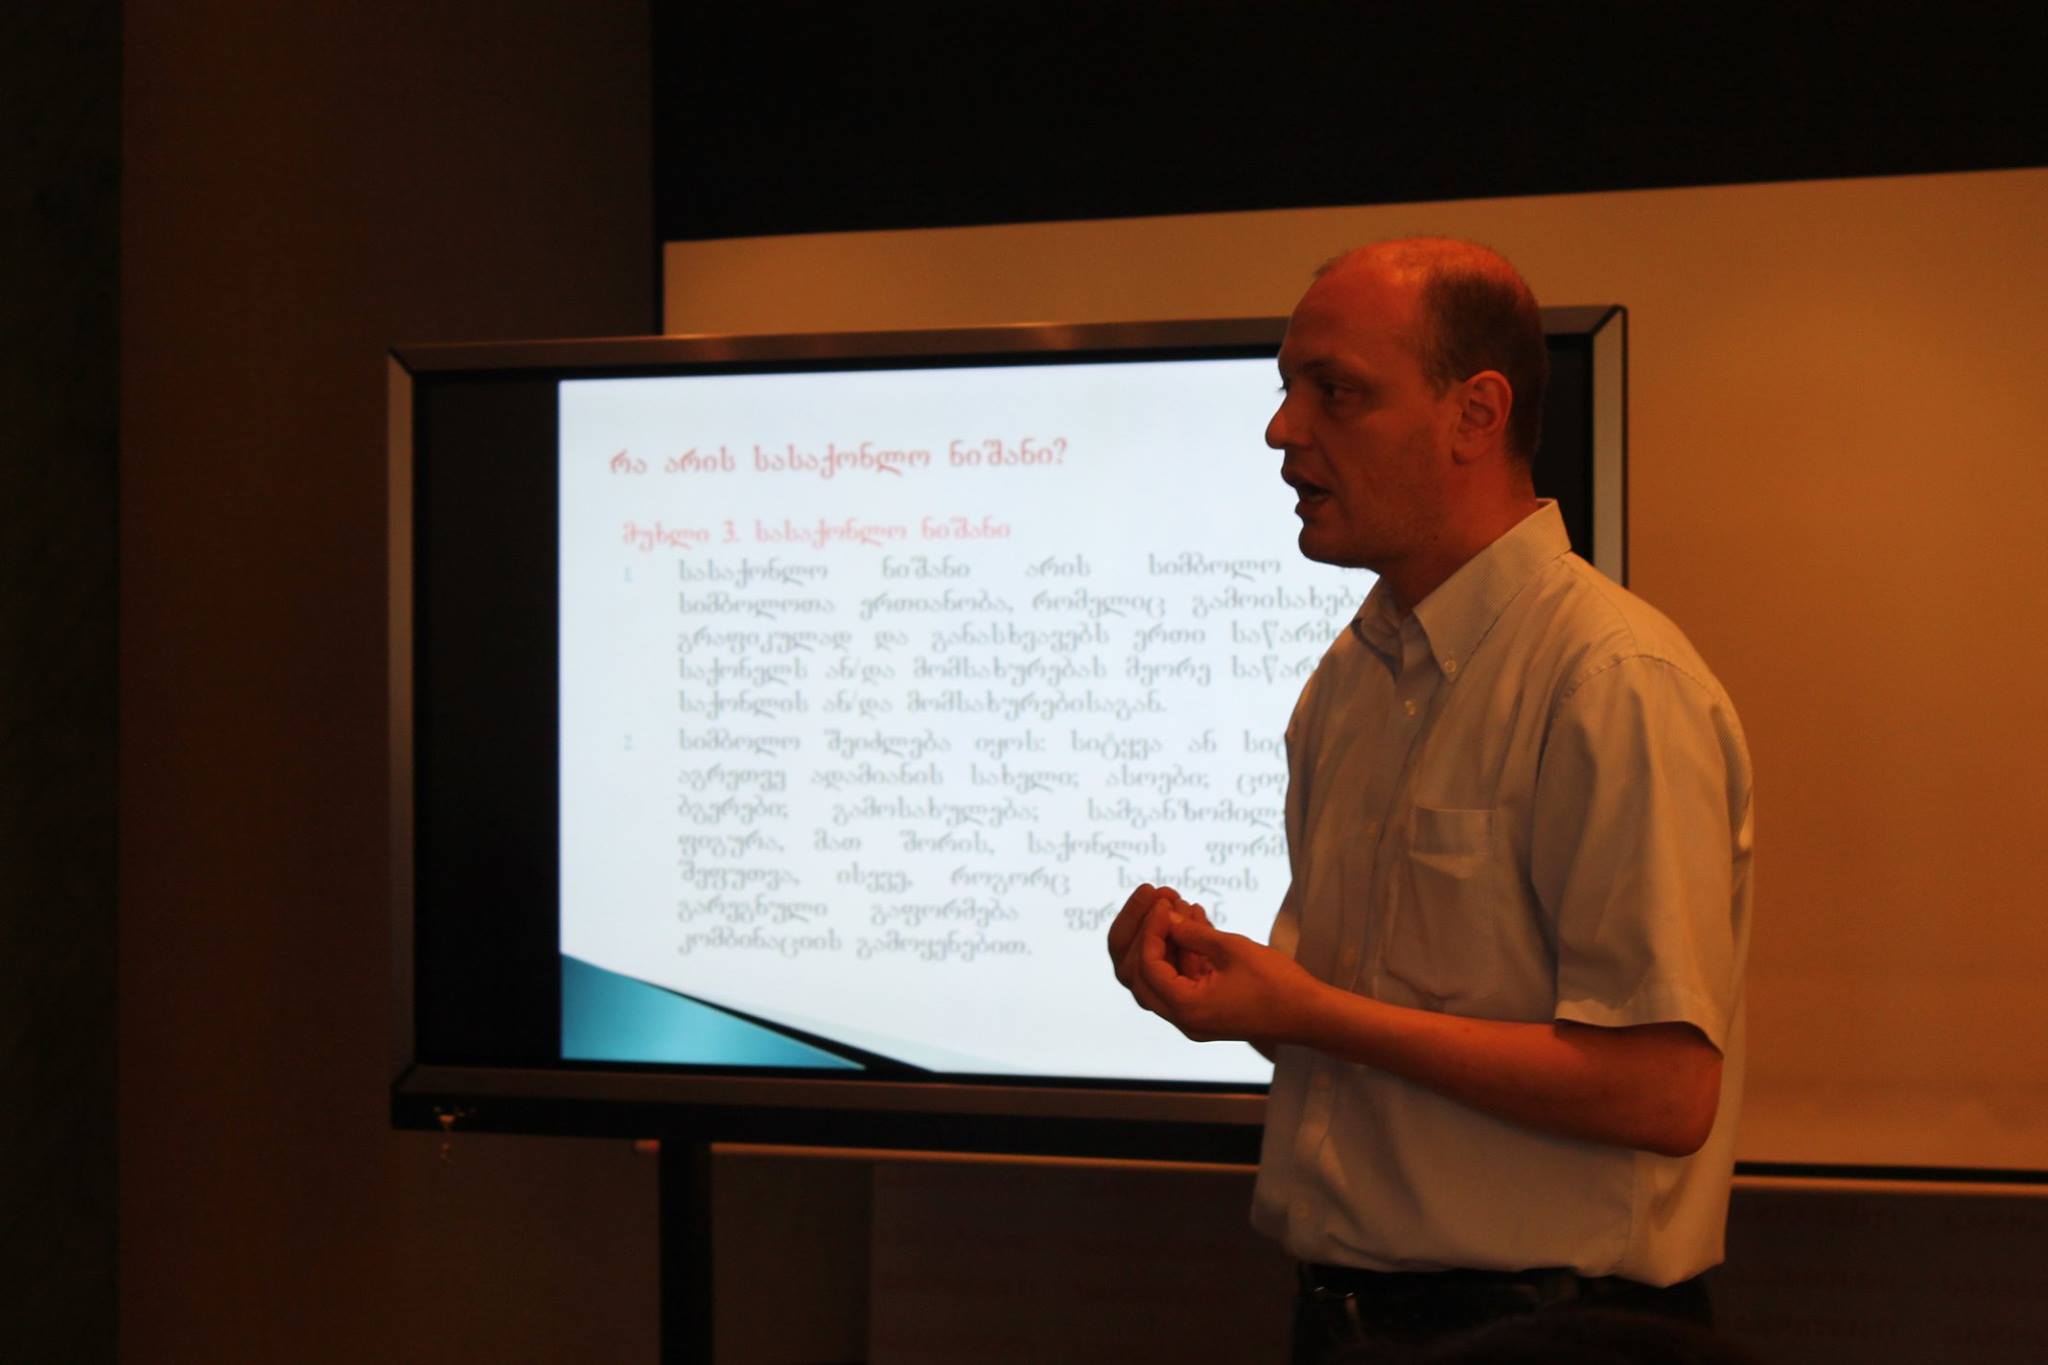 რა არის სასაქონლო ნიშანი?
მუხლი 3. სასაქონლო ნიშანი
1. სასაქონლო ნიშანი არის სიმბოლო
სიმბოლოთა ერთიანობა, რომელიც გამოისახება
გრაფიკულად და განასხვავებს ერთი
საქონელს ან/და მომსახურებას მეორე
საქონლის ან/და მომსახურებისაგან.
2. სიმბოლო შეიძლება იყოს: სიტყვა ან
აგრეთვე ადამიანის სახელი; ასოები;
ბგერები; გამოსახულება;
ფიგურა, მათ შორის, საქონლის
შეფუთვა, ისევე, როგორც საქონლის
გარეგნული გაფორმება
კომბინაციის გამოყენებით.